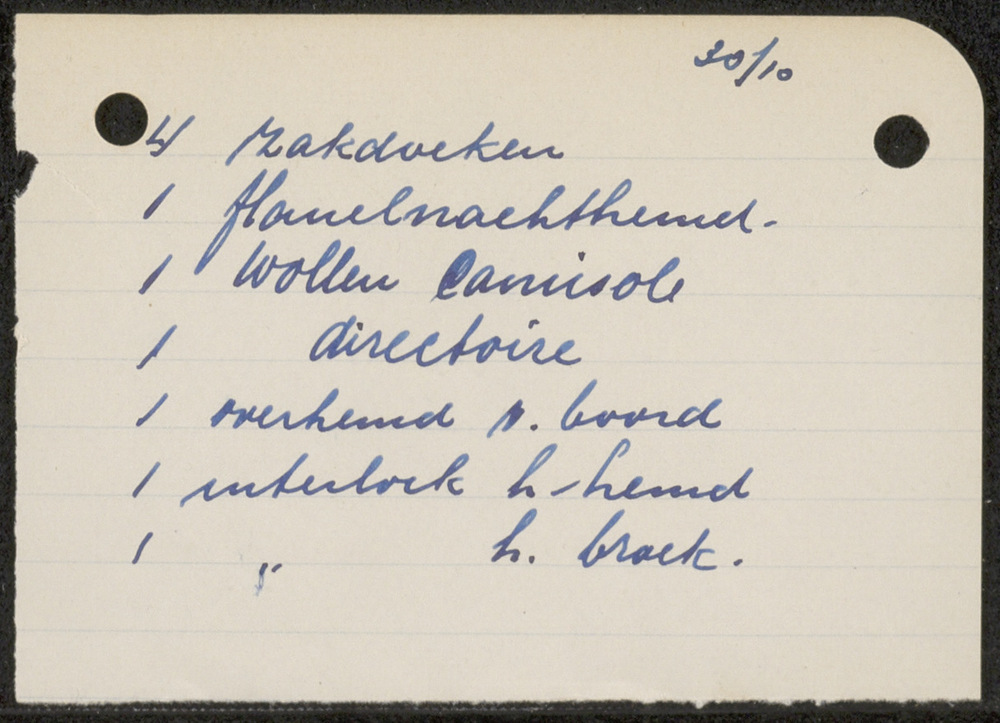 30/10
4 zakdoeken
1 flanelnachthemd.
1 wollen Camisole
1 directoire
1 overhemd s. boord
1 interlock h-hemd
1 „ h. broek.